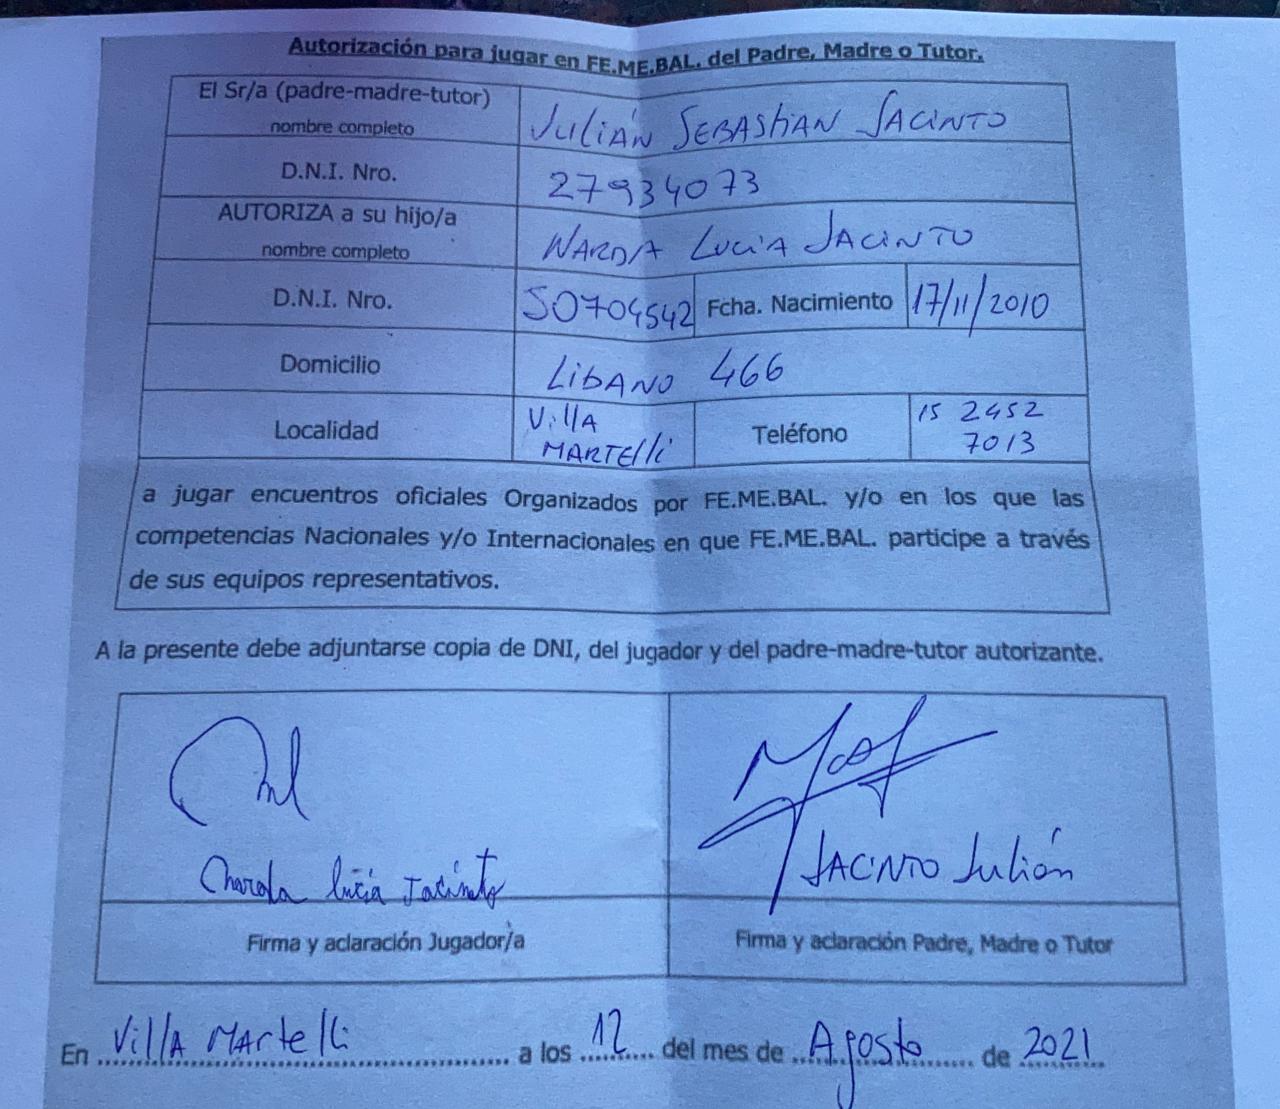 Autorización para jugar en FE.ME.BAL. del Padre, Madre o Tutor.
El Sr/a (padre-madre-tutor)
nombre completo
JULIÁN SEBASTIAN JACINTO
D.N.I. Nro.
27934073
AUTORIZA a su hijo/a
nombre completo
LUCÍA JACINTO
D.N.I. Nro.
50704542
Fcha. Nacimiento
17/11/2010
Domicilio
LIBANO 466
Localidad
Villa
MARTElli
Teléfono
15 2452
7013
a jugar encuentros oficiales Organizados por FE.ME.BAL. y/o en los que las
competencias Nacionales y/o Internacionales en que FE.ME.BAL. participe a través
de sus equipos representativos.
A la presente debe adjuntarse copia de DNI, del jugador y del padre-madre-tutor autorizante.
lucía Jacinto
JACINTO Julián
Firma y aclaración Jugador/a
Firma y aclaración Padre, Madre o Tutor
En Villa MArtelli a los 12 del mes de Agosto de 2021